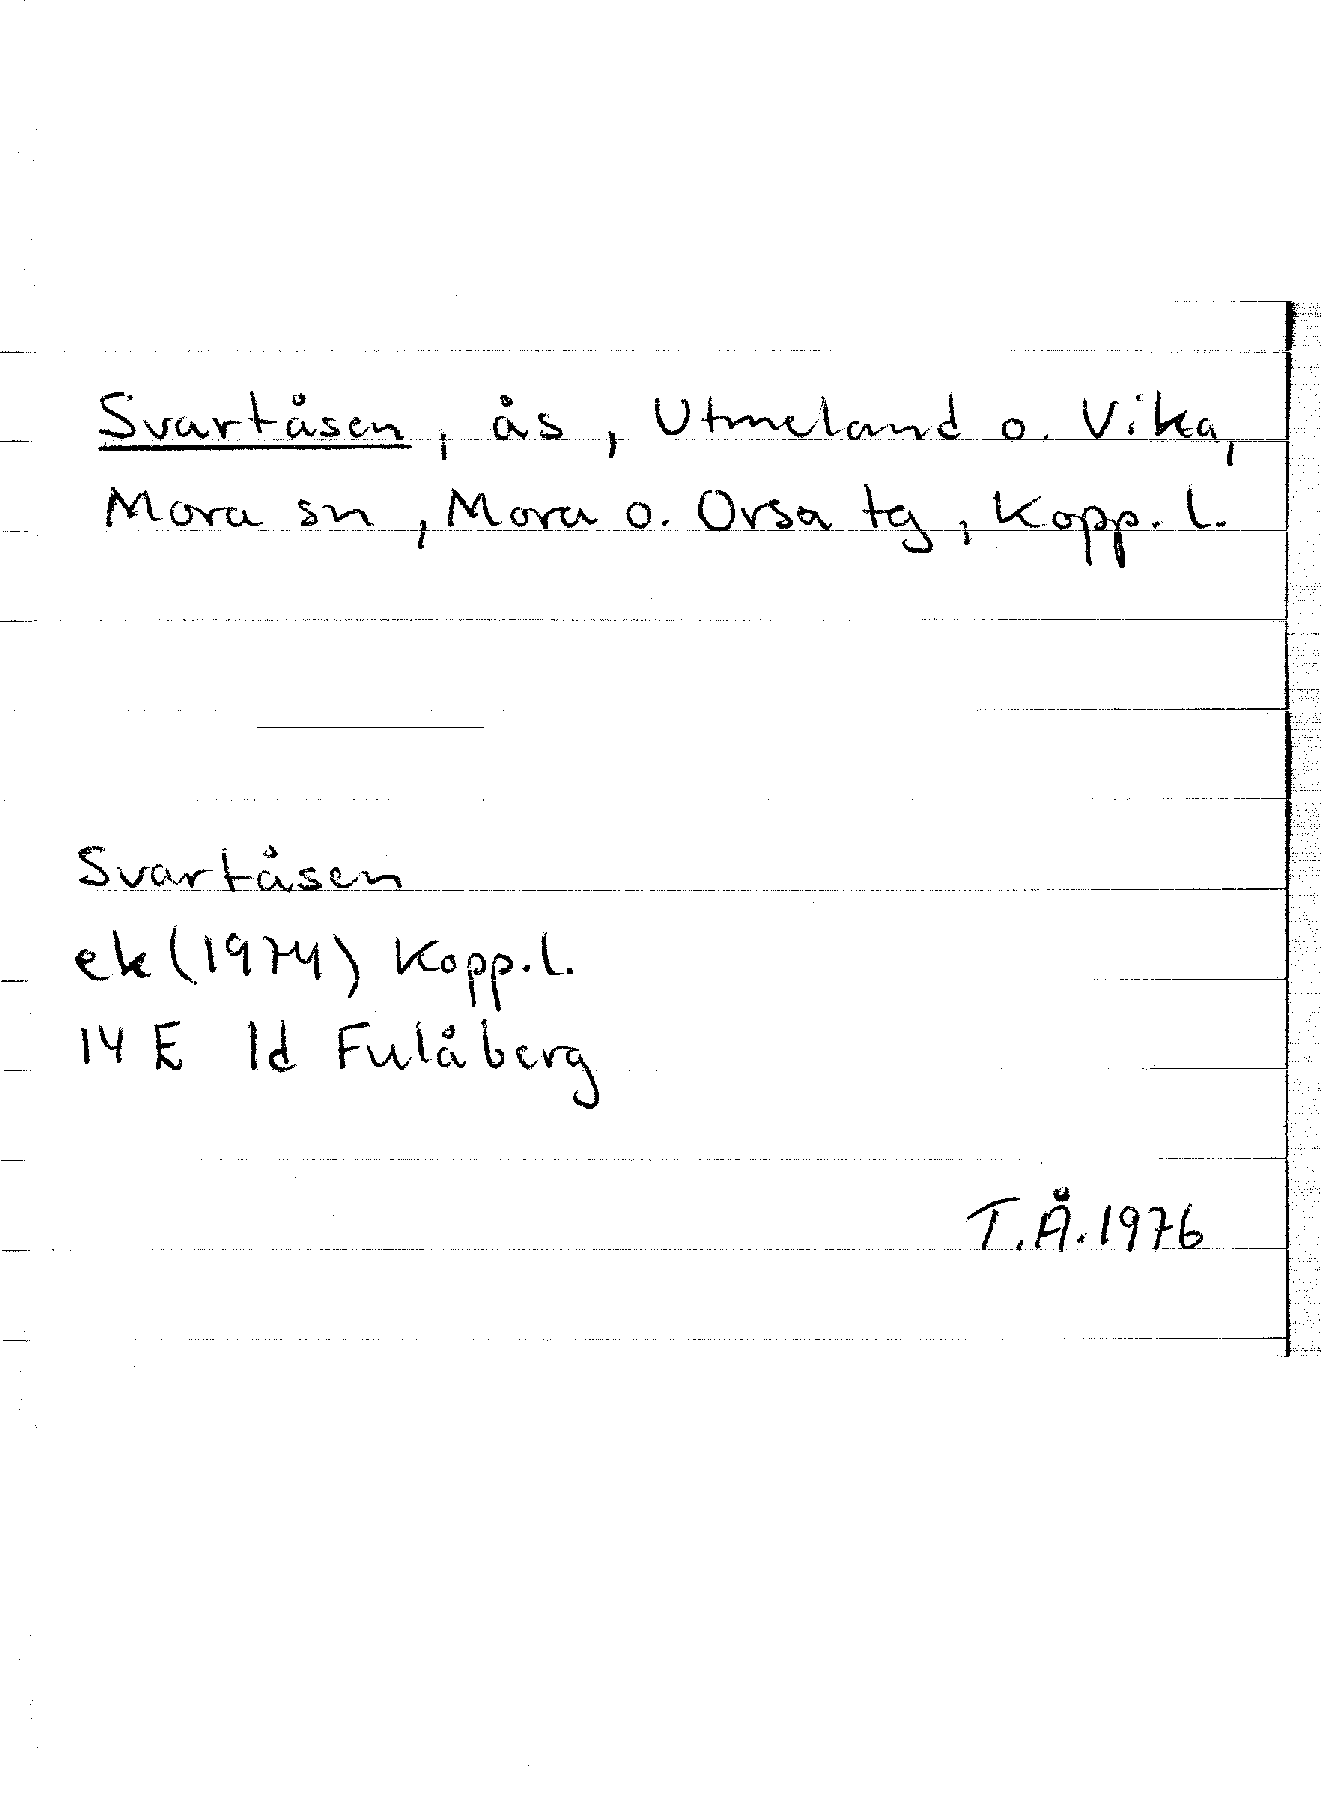 Svartåsen, ås, Utmeland o. Vika,
Mora sn, Mora o. Orsa tg, Kopp. l.
Svartåsen
ek (1974) Kopp. l.
14 E 1d Fulåberg
T.Å. 1976